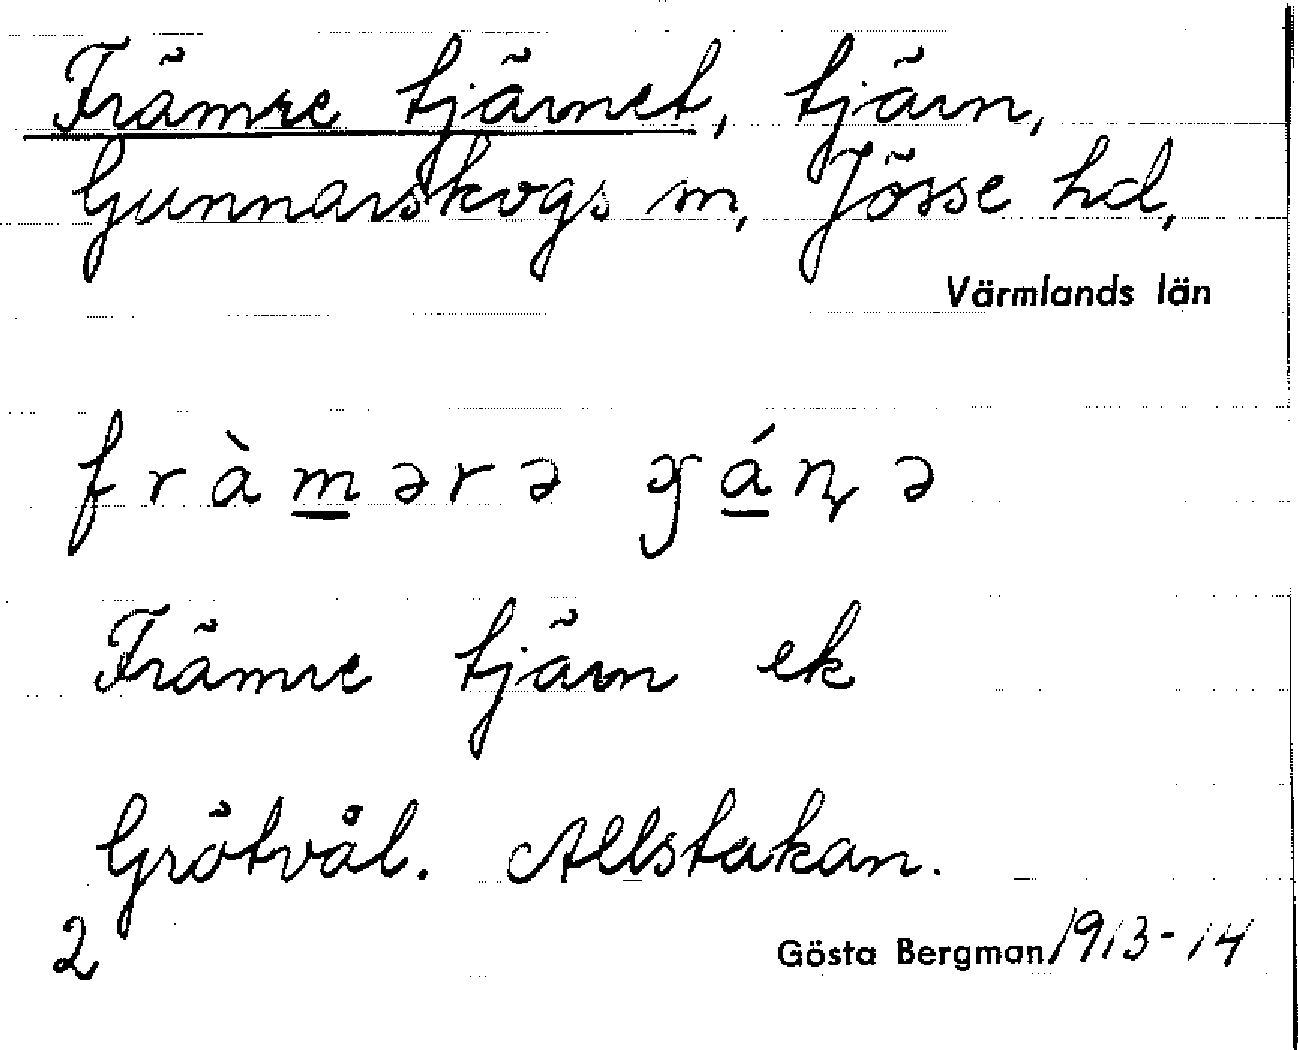 Främre tjärnet, tjärn,
Gunnarskogs sn, Jösse hd,
Värmlands län
fràmərə ɡáɳə
Främre tjärn ek
Grötvål. Allstakan.
2
Gösta Bergman 1913-14